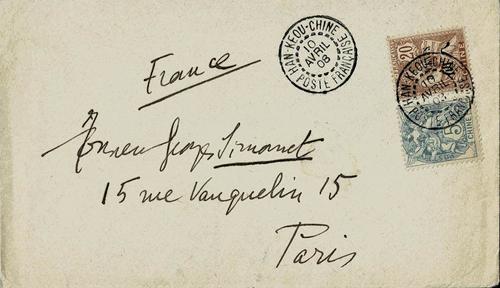 HAN-KEOU-CHINE
10
AVRIL
08
POSTE FRANÇAISE
20
HAN-KEOU-CHINE
10
AVRIL
08
POSTE FRANÇAISE
5
CHINE
France
Monsieur Georges Simonet
15 rue Vauquelin 15
Paris